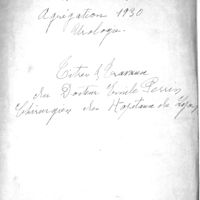 Agrégation 1930
Urologie
Titres & Travaux
du Docteur Emile Perrin
Chirurgien des Hôpitaux de Lyon